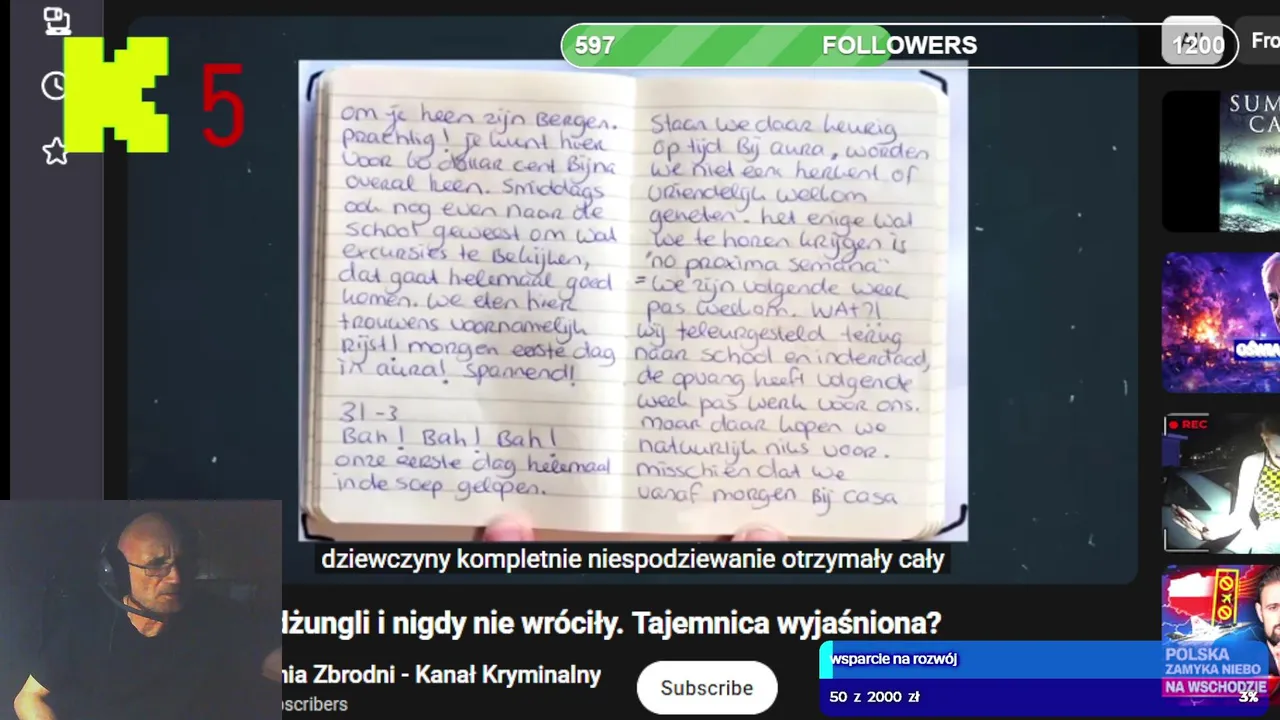 597
FOLLOWERS
1200
All
Fro
K 5
om je heen zijn Bergen.
prachtig! je kunt hier
voor 60 dollar cent Bijna
overal heen. Smiddags
ook nog even naar de
school geweest om wat
excursies te Bekijken,
dat gaat helemaal goed
komen. We eten hier
trouwens voornamelijk
Rijst! morgen eerste dag
in aura! Spannend!
31-3
Bah! Bah! Bah!
onze eerste dag helemaal
in de soep gelopen.
Staan we daar keurig
op tijd Bij aura, worden
we niet eem herkent of
vriendelijk welkom
geheten. het enige wat
we te horen krijgen is
"no proxima semana"
= we zijn volgende week
pas welkom. WAT?!
Wij teleurgesteld terug
naar school en inderdaad,
de opvang heeft volgende
week pas werk voor ons.
maar daar kopen we
natuurlijk niks voor.
misschien dat we
vanaf morgen Bij casa
dziewczyny kompletnie niespodziewanie otrzymały cały
dżungli i nigdy nie wróciły. Tajemnica wyjaśniona?
nia Zbrodni - Kanał Kryminalny
scribers
Subscribe
wsparcie na rozwój
50 z 2000 zł
3%
SUM
CA
REC
POLSKA
ZAMYKA NIEBO
NA WSCHODZIE